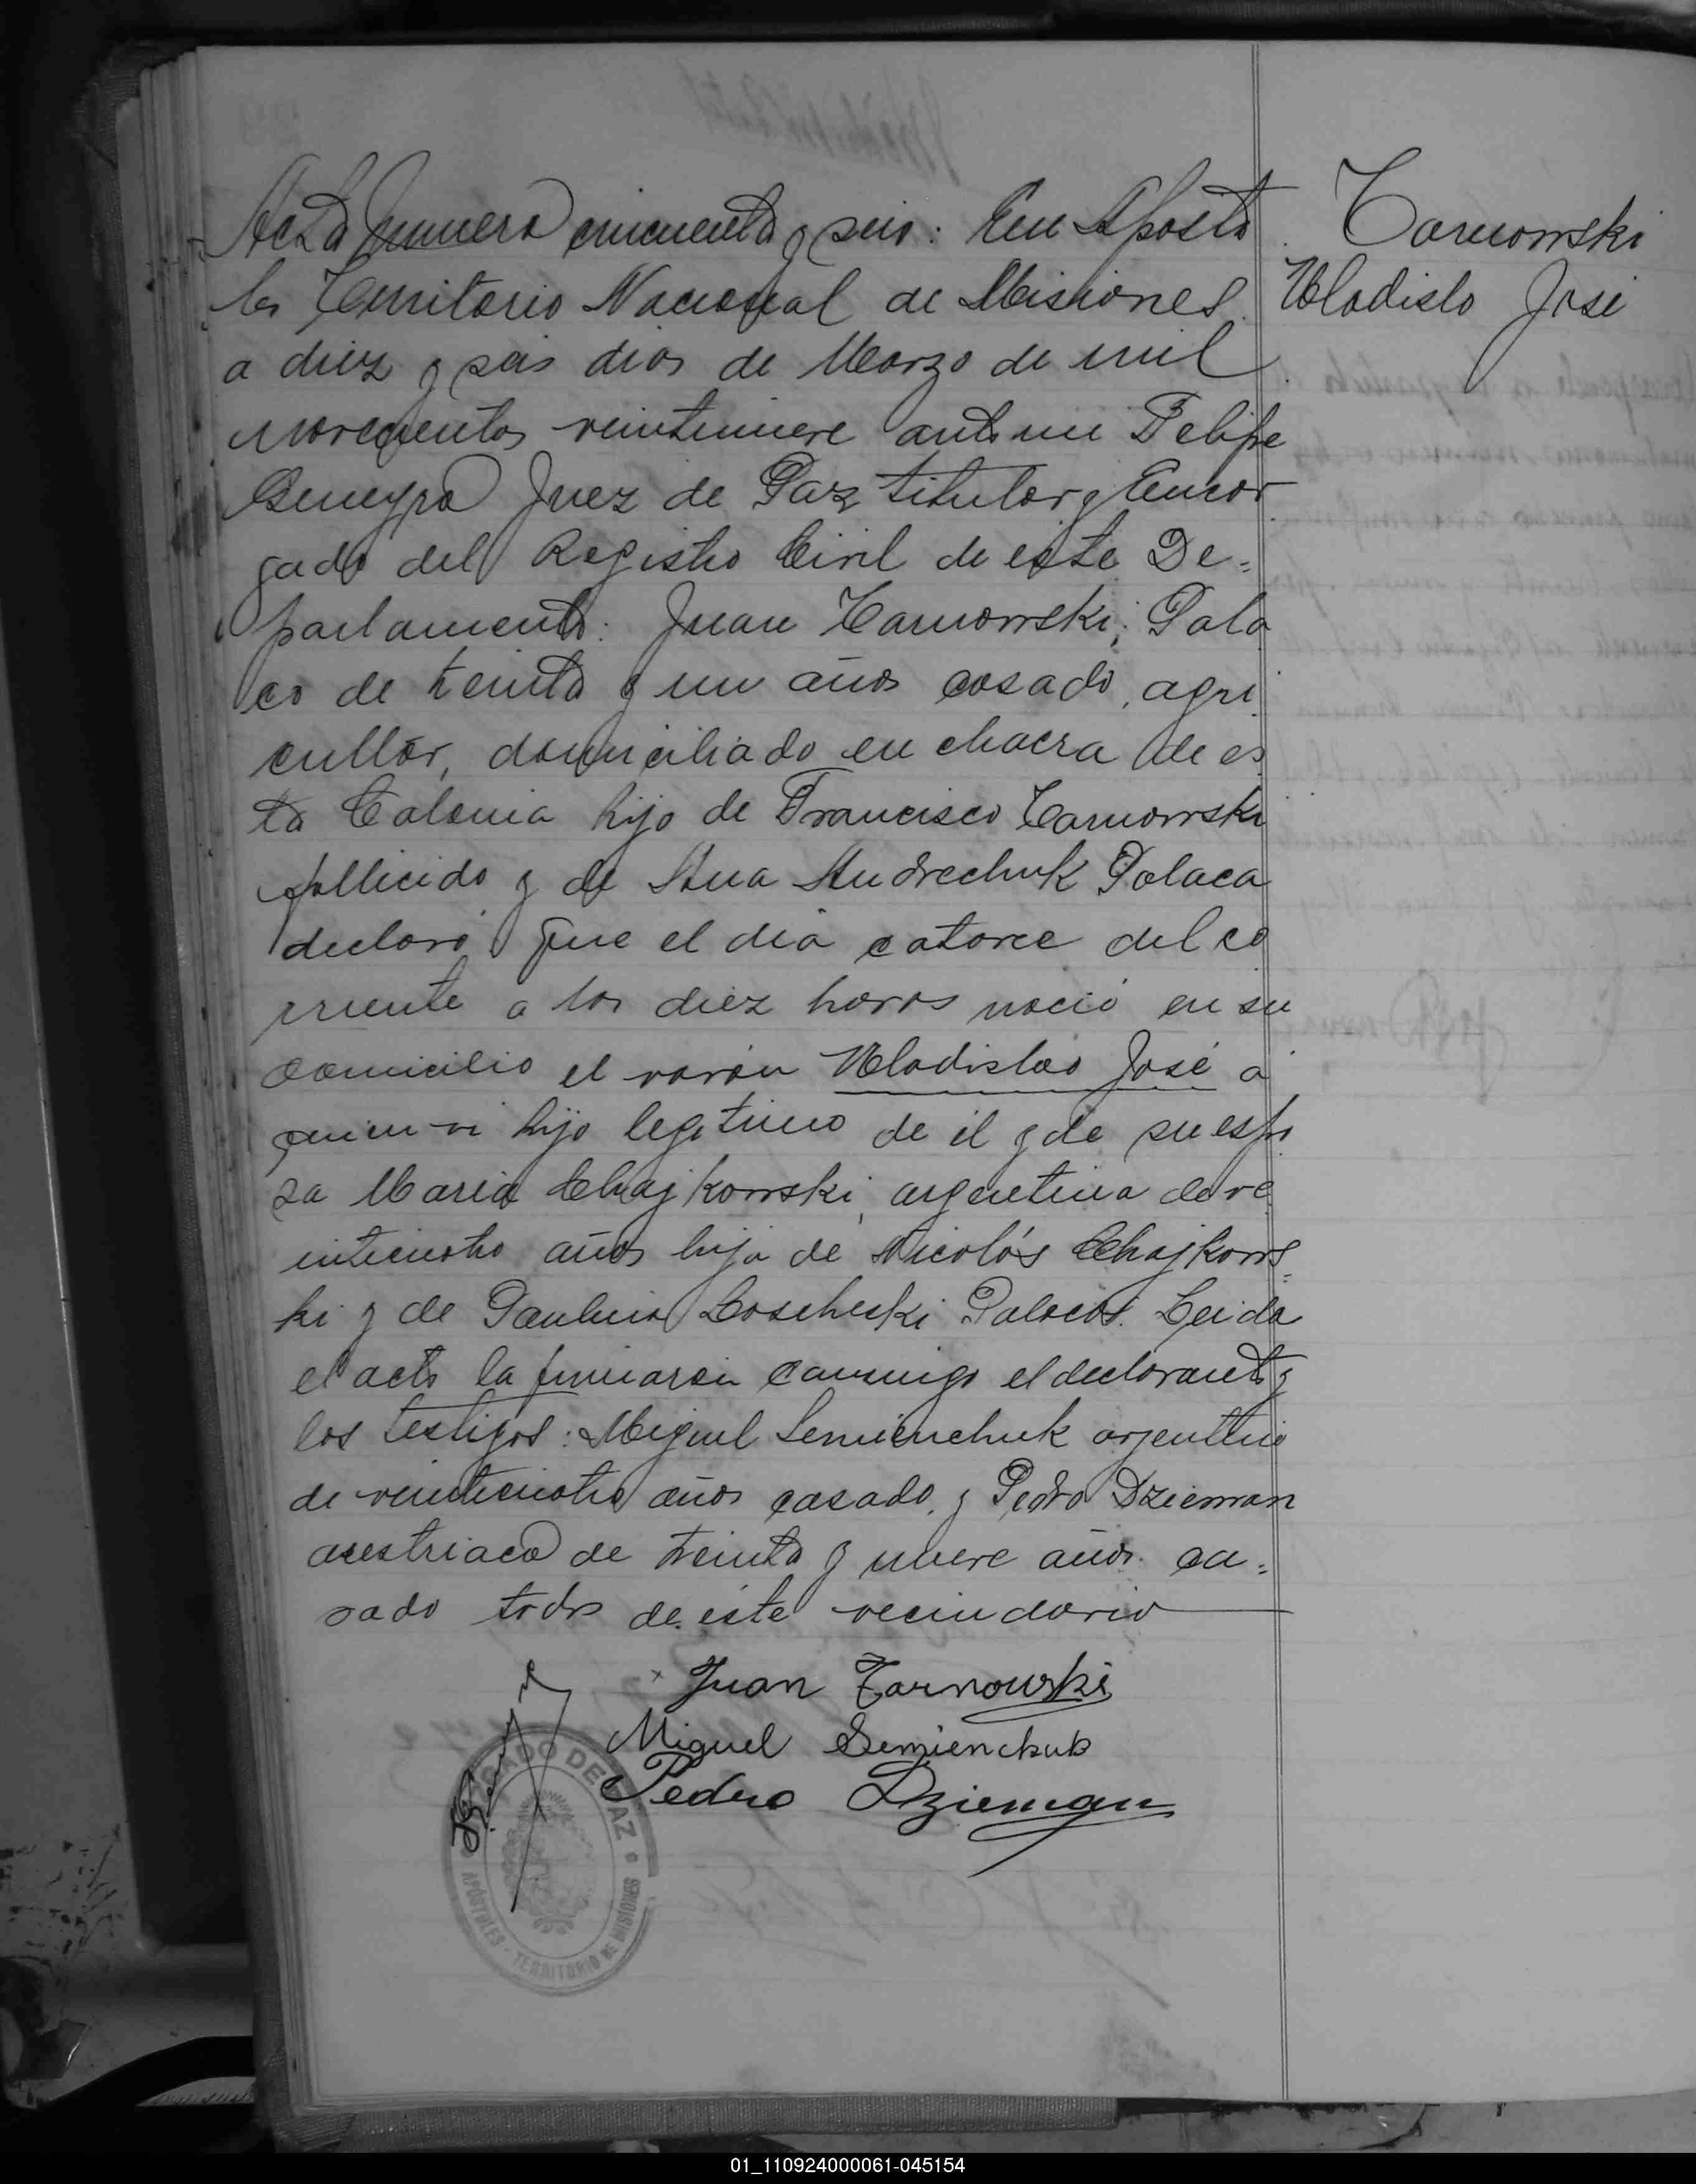 Acta número cincuenta y seis: En Aposto
les Territorio Nacional de Misiones
a diez y seis dias de Marzo de mil
novecientos veintinueve ante mi Felipe
Juez de Paz titular y Encar
gado del Registro Civil de este De=
partamento: Juan Tarnowski, Pola
co de treinta y un años casado, agri
cultor, domiciliado en chacra de es
ta Colonia hijo de Francisco Tarnowski
fallecido y de Ana Andrechuk Polaca
declaró que el dia catorce del co
rriente a las diez horas nació en su
domicilio el varón Wladislao José á
quien vi hijo legitimo de él y de su espo
sa Maria Chajkowski, argentina de ve
inticuatro años hija de Nicolás Chajkows=
ki y de Paulina Polacos. Leida
el acta la firmaron conmigo el declarante y
los testigos: Miguel Semienchuk argentino
de veinticuatro años casado, y Pedro Dzieman
austriaco de treinta y nueve años ca=
sado todos de este vecindario
Juan Tarnowski
Miguel Semienchuk
Pedro Dzieman
JUZGADO DE PAZ
APÓSTOLES - TERRITORIO DE MISIONES
Tarnowski
Wladislo José
01_110924000061-045154